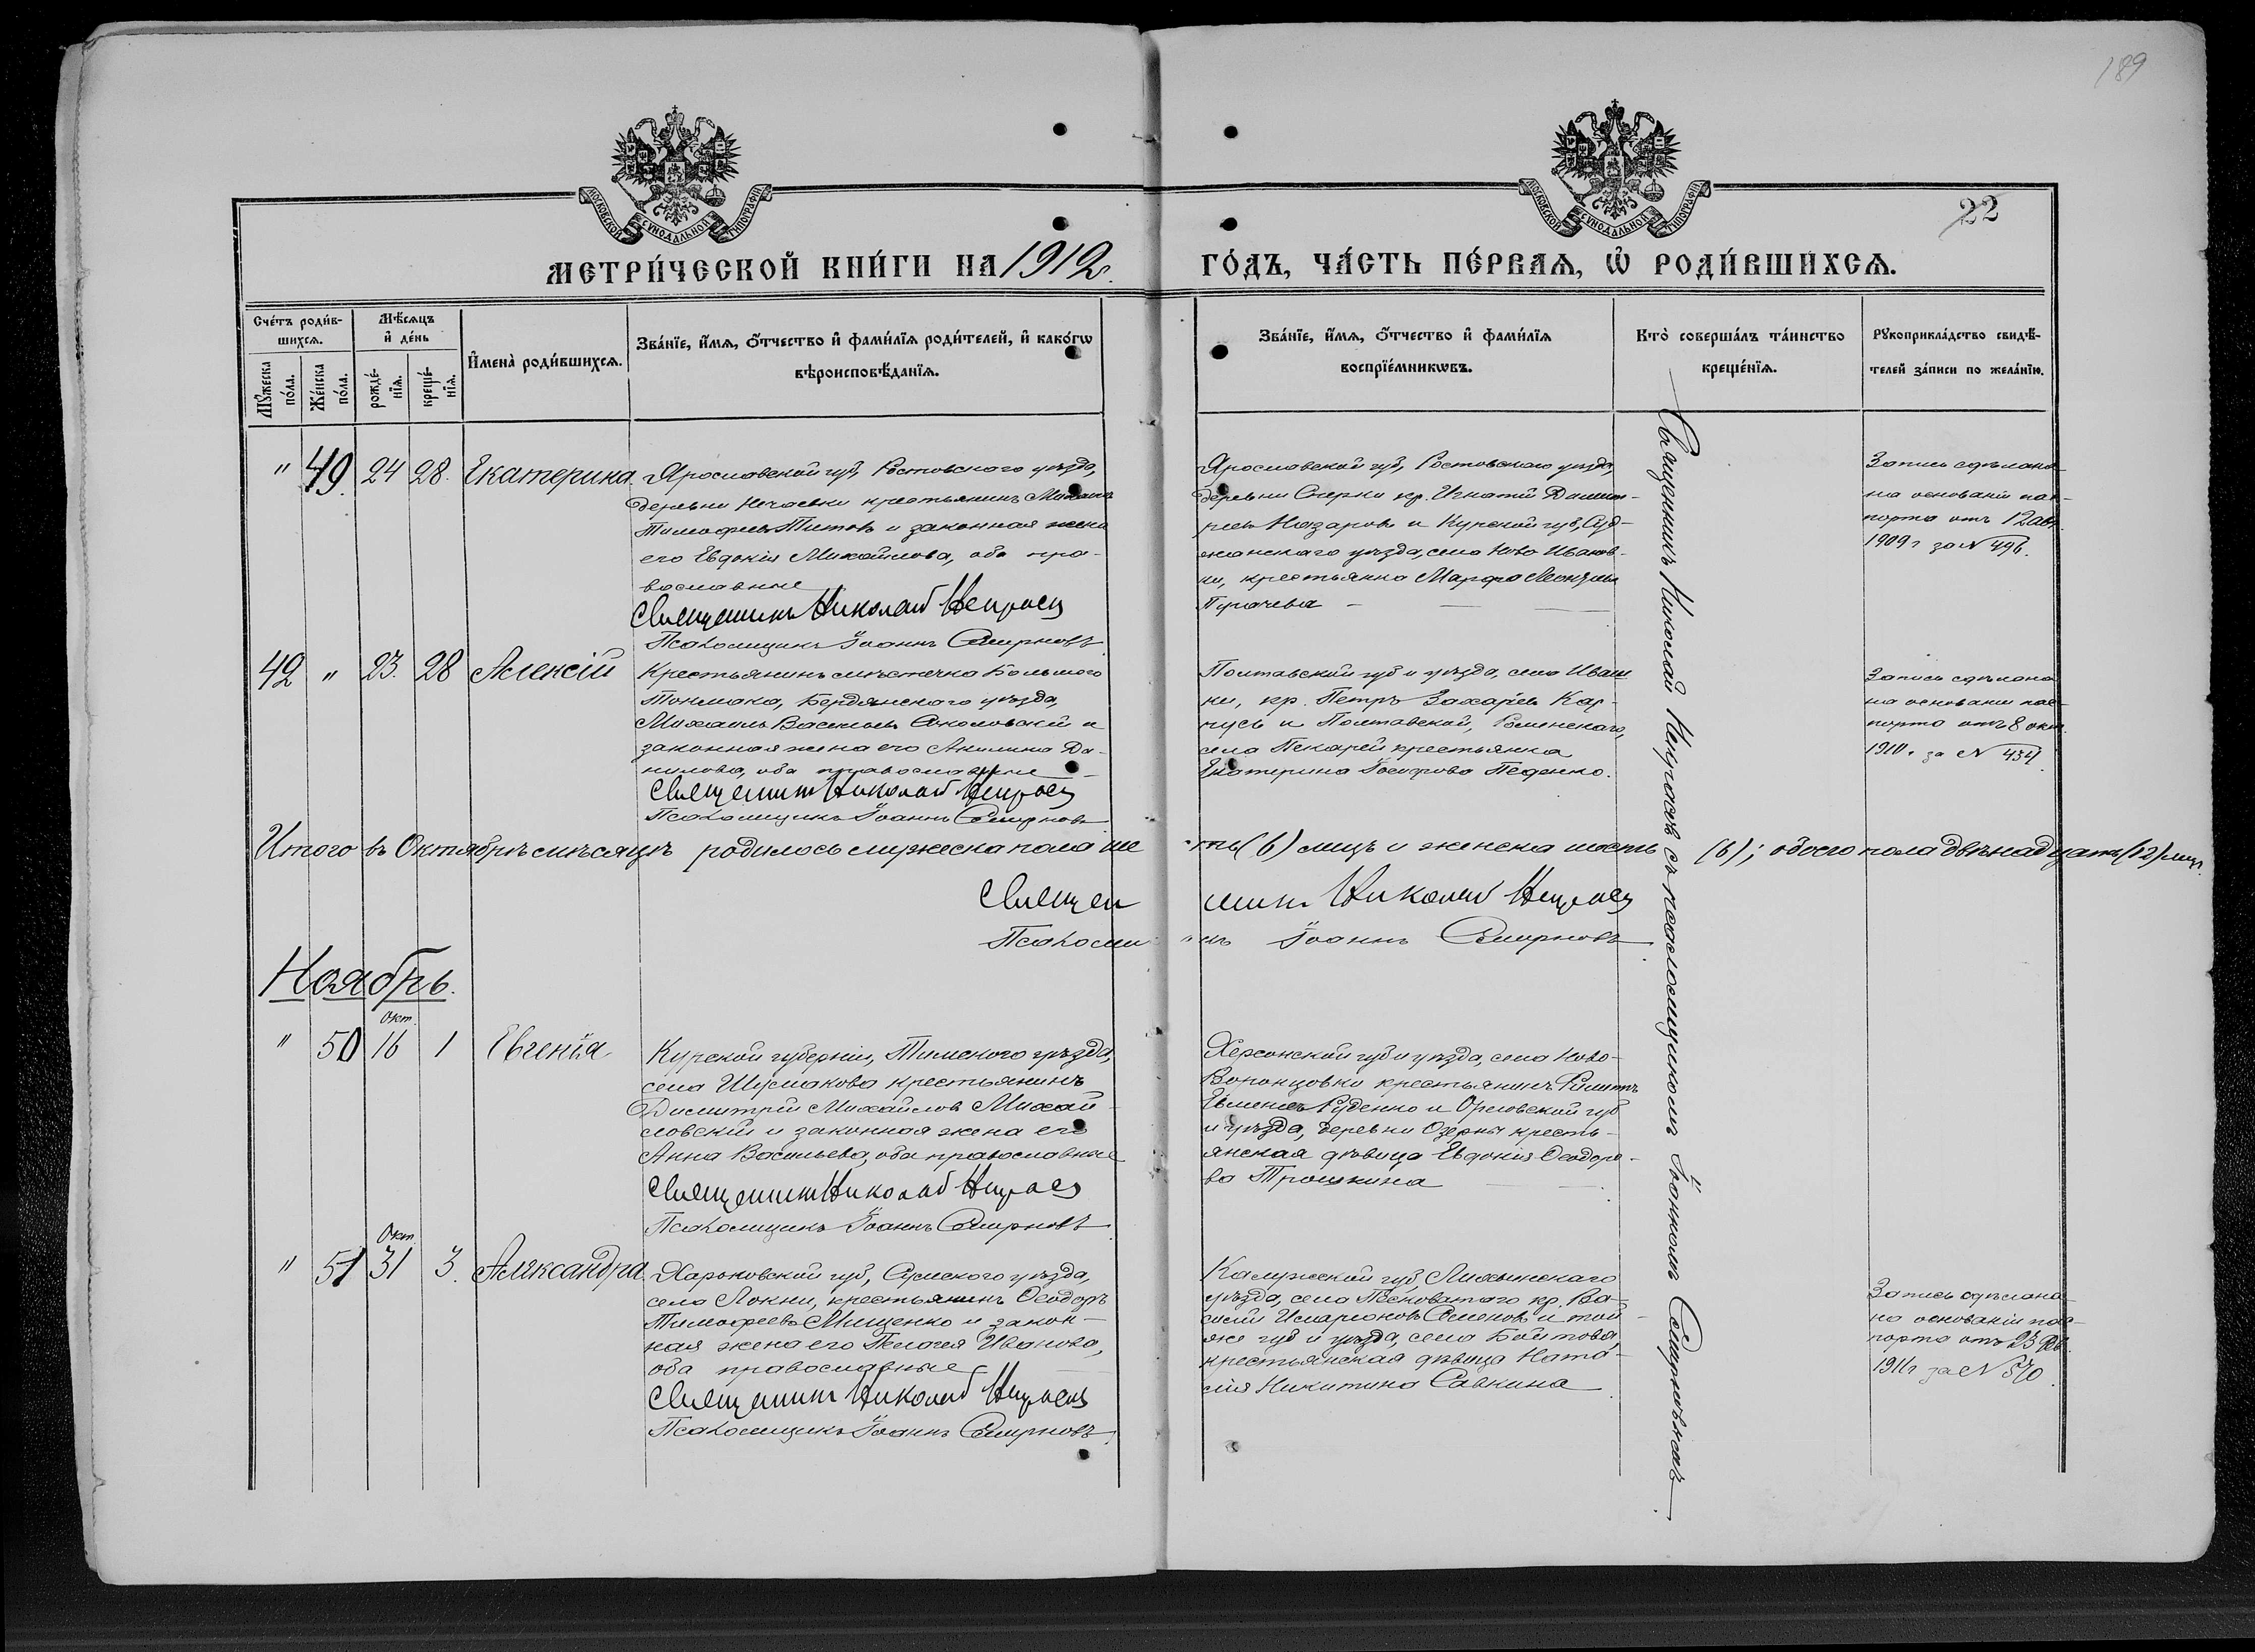 189
МОСКОВСКОЙ СѴНОДАЛЬНОЙ ТИПОГРАФІИ
МОСКОВСКОЙ СѴНОДАЛЬНОЙ ТИПОГРАФІИ
22
МЕТРИ́ЧЕСКОЙ КНИ́ГИ НА 1912 г. ГО́ДЪ, ЧА́СТЬ ПЕ́РВАѦ, Ѡ҆ РОДИ́ВШИХСѦ.
Сче́тъ роди́в-
шихсѧ.
Мꙋ́жеска
по́ла.
Же́нска
по́ла.
Мѣ́сѧцъ
и҆ де́нь
рожде́-
нїѧ.
креще́-
нїѧ.
И҆мена̀ роди́вшихсѧ.
Зва́нїе, и҆́мѧ, ѻ҆́тчество и҆ фами́лїѧ роди́телей, и҆ како́гѡ
вѣроисповѣ́данїѧ.
Зва́нїе, и҆́мѧ, ѻ҆́тчество и҆ фами́лїѧ
воспрїе́мникѡвъ.
Кто̀ соверша́лъ та́инство
креще́нїѧ.
Рꙋкоприкла́дство свидѣ́-
телей за́писи по жела́нїю.
" 49. 24 28. Екатерина.
Ярославской губ, Ростовского уѣзда,
деревни Нечаевки крестьянинъ Михаилъ
Тимофеевъ Титовъ и законная жена
его Евдокія Михайлова, оба пра-
вославные
Священникъ Николай
Псаломщикъ Іоаннъ Смирновъ
Ярославской губ, Ростовскаго уѣзда,
деревни кр. Игнатій Димит-
ріев Назаров и Курской губ, Суд-
жанскаго уѣзда, села Ново Иванов-
ки, крестьянка Марфа
Запись сдѣлана
на основаніи пас-
порта отъ 12 авг.
1909 г за N 496.
42 " 23. 28 Алексій
Крестьянинъ мѣстечка Большого
Токмака, Бердянского уѣзда,
Михаилъ Васильевъ и
законная жена его Акилина Да-
нилова, оба православные
Священникъ Николай
Псаломщикъ Іоаннъ Смирновъ
Полтавской губ и уѣзда, села Иваш
ки, кр. Петръ Захаріев Кар-
пусь и Полтавской, Роменскаго,
села Пекарей крестьянка
Екатерина Іосифова Педенко.
Запись сдѣлана
на основаніи пас-
порта отъ 8 окт.
1910 г за N 434
Итого въ Октябрѣ мѣсяцѣ родилось мужеска пола шесть (6) лицъ и женска шесть (6); обоего пола двѣнадцать (12) лицъ.
Священникъ Николай
Псаломщикъ Іоаннъ Смирновъ
Ноябрь.
" 50 Окт. 16 1 Евгенія
Курской губерніи, Тимского уѣзда,
села Шумакова крестьянинъ
Димитрій Михайлов Михай-
ловскій и законная жена его
Анна Васильева, оба православные
Священникъ Николай
Псаломщикъ Іоаннъ Смирновъ
Херсонской губ и уѣзда, села Ново-
Воронцовки крестьянинъ Филиппъ
Руденко и Орловской губ
и уѣзда, деревни Озерны кресть-
янская дѣвица Евдокія Ѳеодоро-
ва Трошкина
" 51 Окт. 31 3. Александра.
Харьковской губ, Сумского уѣзда,
села Локни, крестьянинъ Ѳеодоръ
Тимофеевъ Мищенко и закон-
ная жена его Пелагея Иванова,
оба православные
Священникъ Николай
Псаломщикъ Іоаннъ Смирновъ
Калужской губ, Лихвинскаго
уѣзда, села Песковатого кр. Ва-
силій Иларіоновъ Семенов и той
же губ и уѣзда, села
крестьянская дѣвица Ната-
лія Никитина Савкина
Запись сдѣлана
на основаніи пас-
порта отъ 23
1911 г за N 570
Священникъ Николай съ псаломщикомъ Іоанномъ Смирновымъ